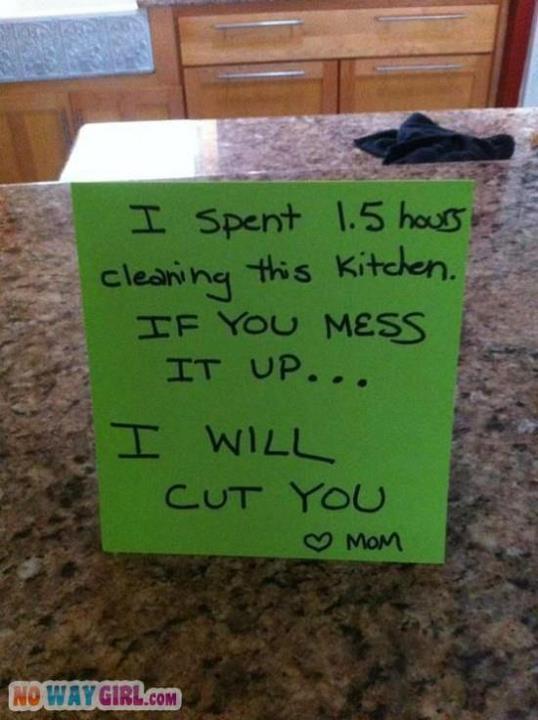 I spent 1.5 hours
cleaning this kitchen.
IF YOU MESS
IT UP...
I WILL
CUT YOU
♡ MOM
NO WAY GIRL.COM